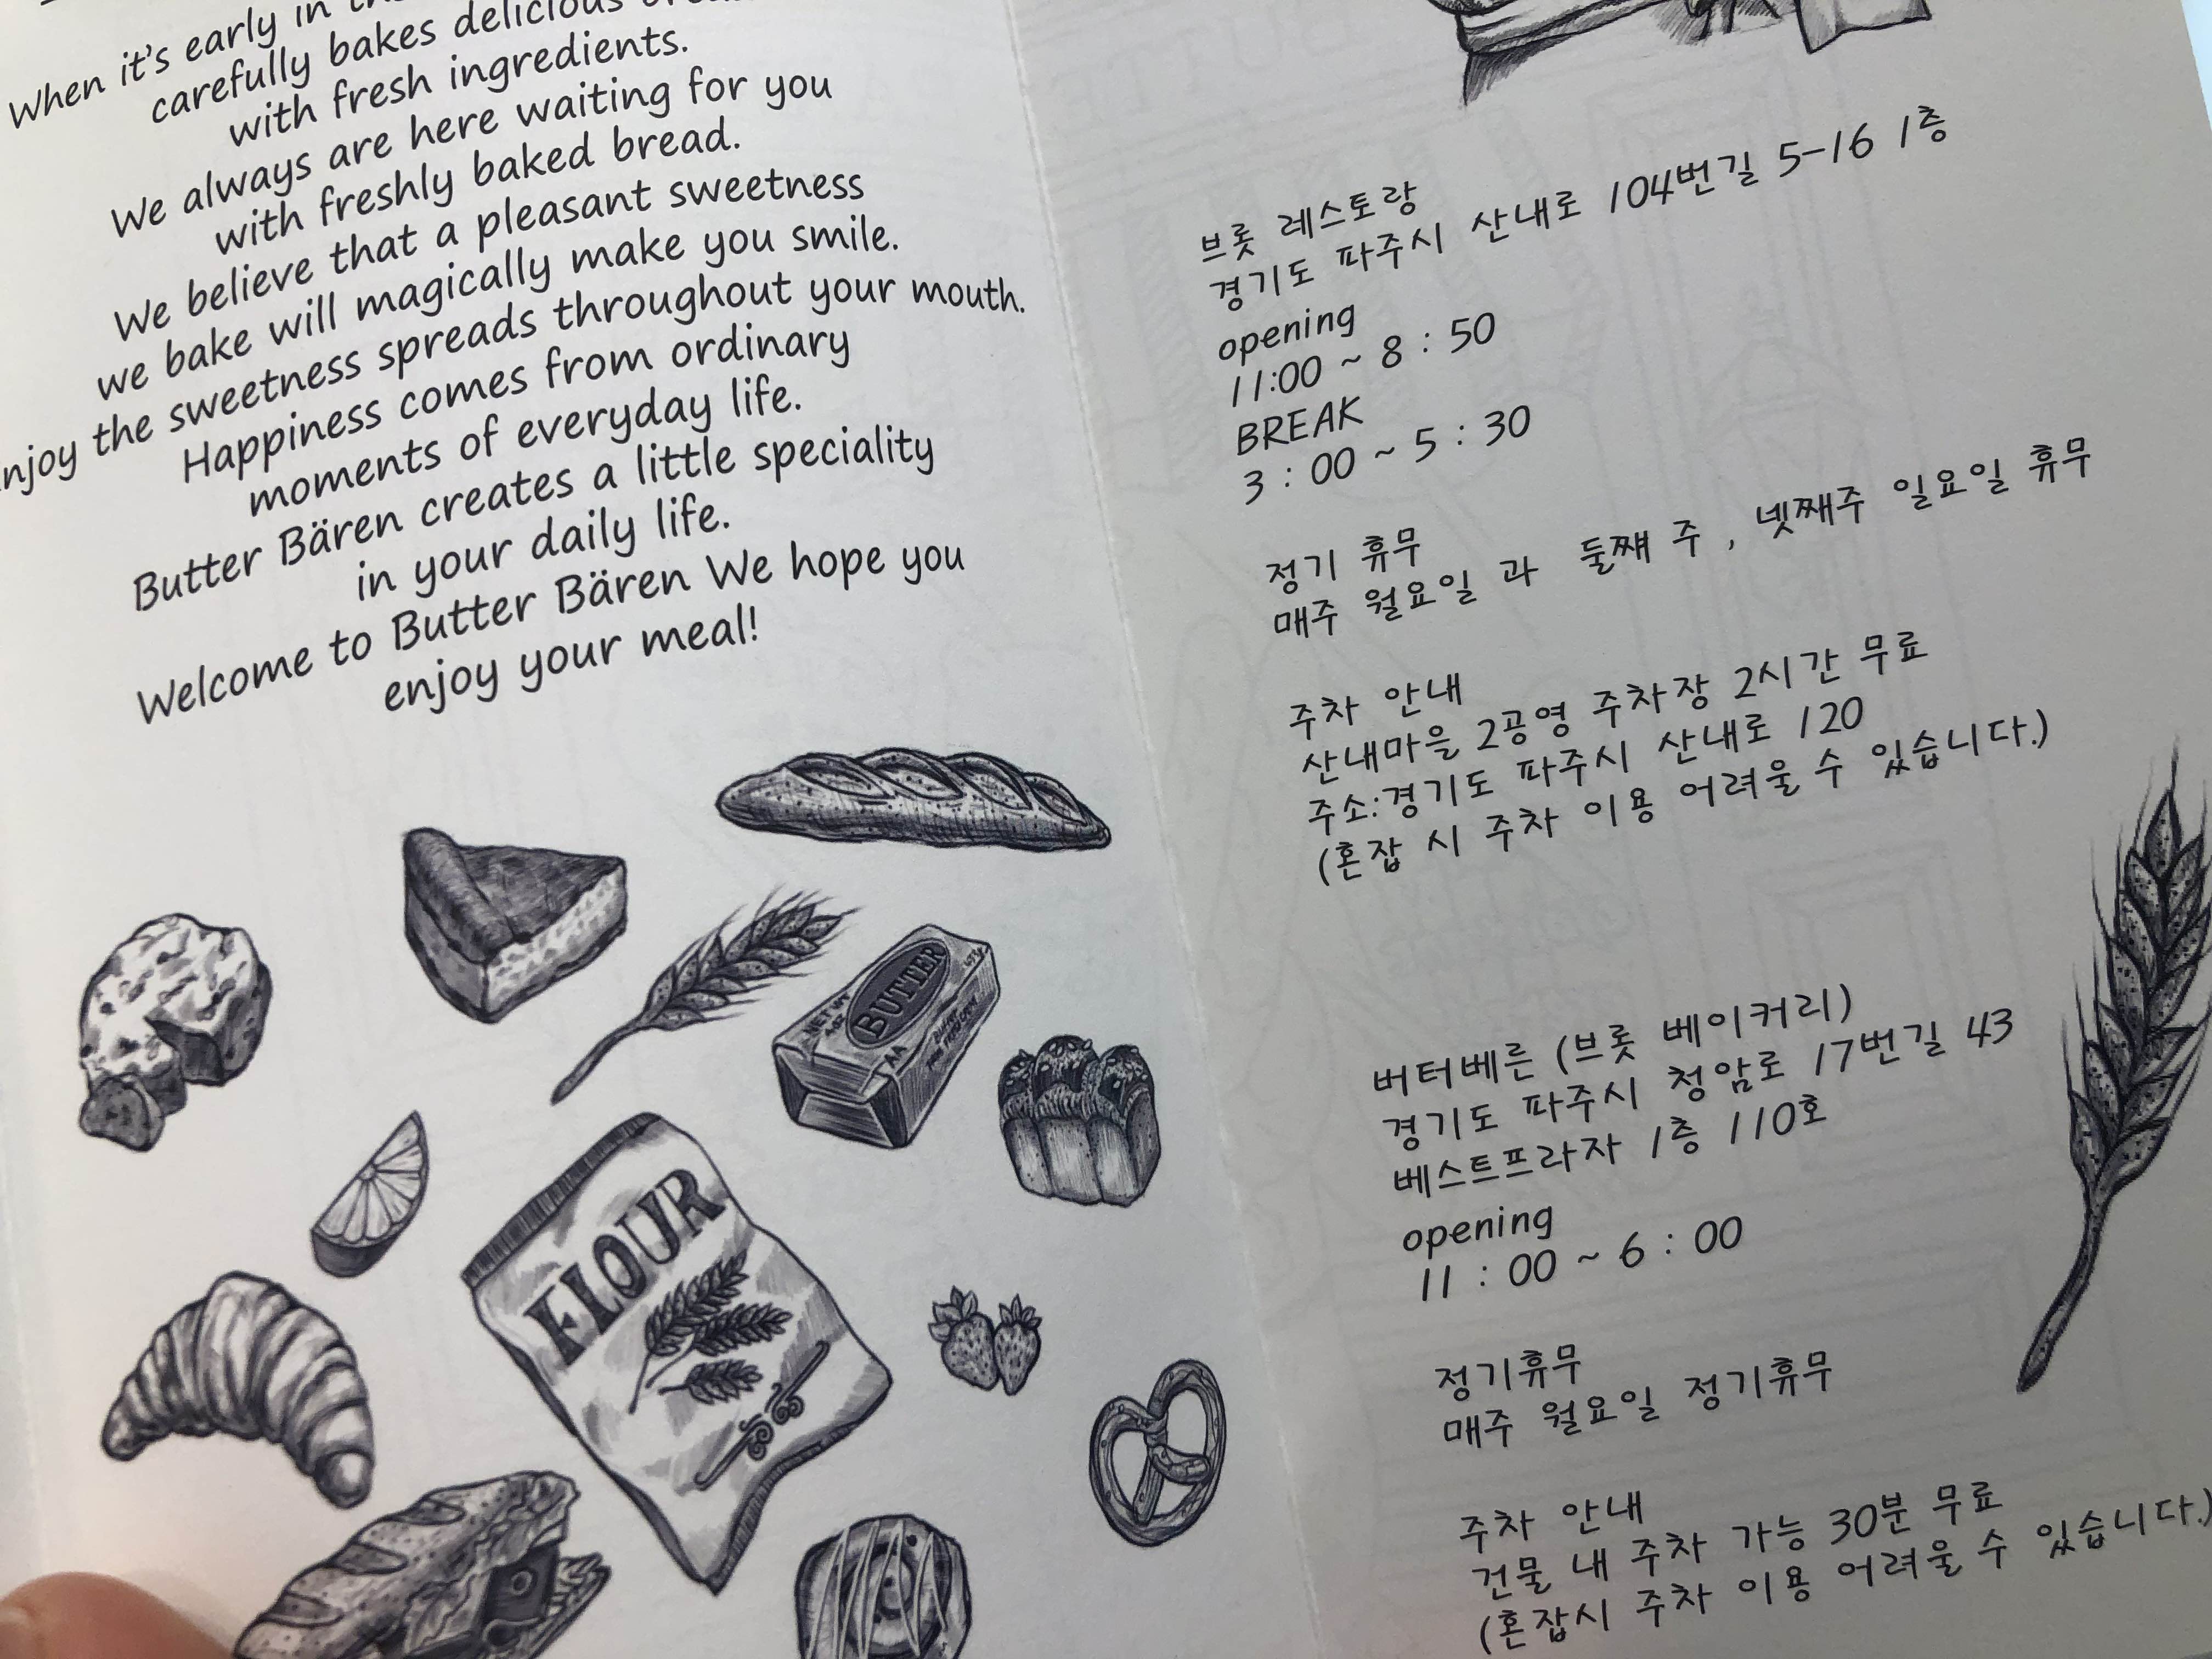 When it's early in
carefully bakes delicious
with fresh ingredients.
We always are here waiting for you
with freshly baked bread.
We believe that a pleasant sweetness
we bake will magically make you smile.
njoy the sweetness spreads throughout your mouth.
Happiness comes from ordinary
moments of everyday life.
Butter Bären creates a little speciality
in your daily life.
Welcome to Butter Bären We hope you
enjoy your meal!
NET WT
BUTTER
AA
FLOUR
브롯 레스토랑
경기도 파주시 산내로 104번길 5-16 1층
opening
11:00 ~ 8 : 50
BREAK
3 : 00 ~ 5 : 30
정기 휴무
매주 월요일 과 둘쨰 주 , 넷째주 일요일 휴무
주차 안내
산내마을 2공영 주차장 2시간 무료
주소:경기도 파주시 산내로 120
(혼잡 시 주차 이용 어려울 수 있습니다.)
버터베른 (브롯 베이커리)
경기도 파주시 청암로 17번길 43
베스트프라자 1층 110호
opening
11 : 00 ~ 6 : 00
정기휴무
매주 월요일 정기휴무
주차 안내
건물 내 주차 가능 30분 무료
(혼잡시 주차 이용 어려울 수 있습니다.)